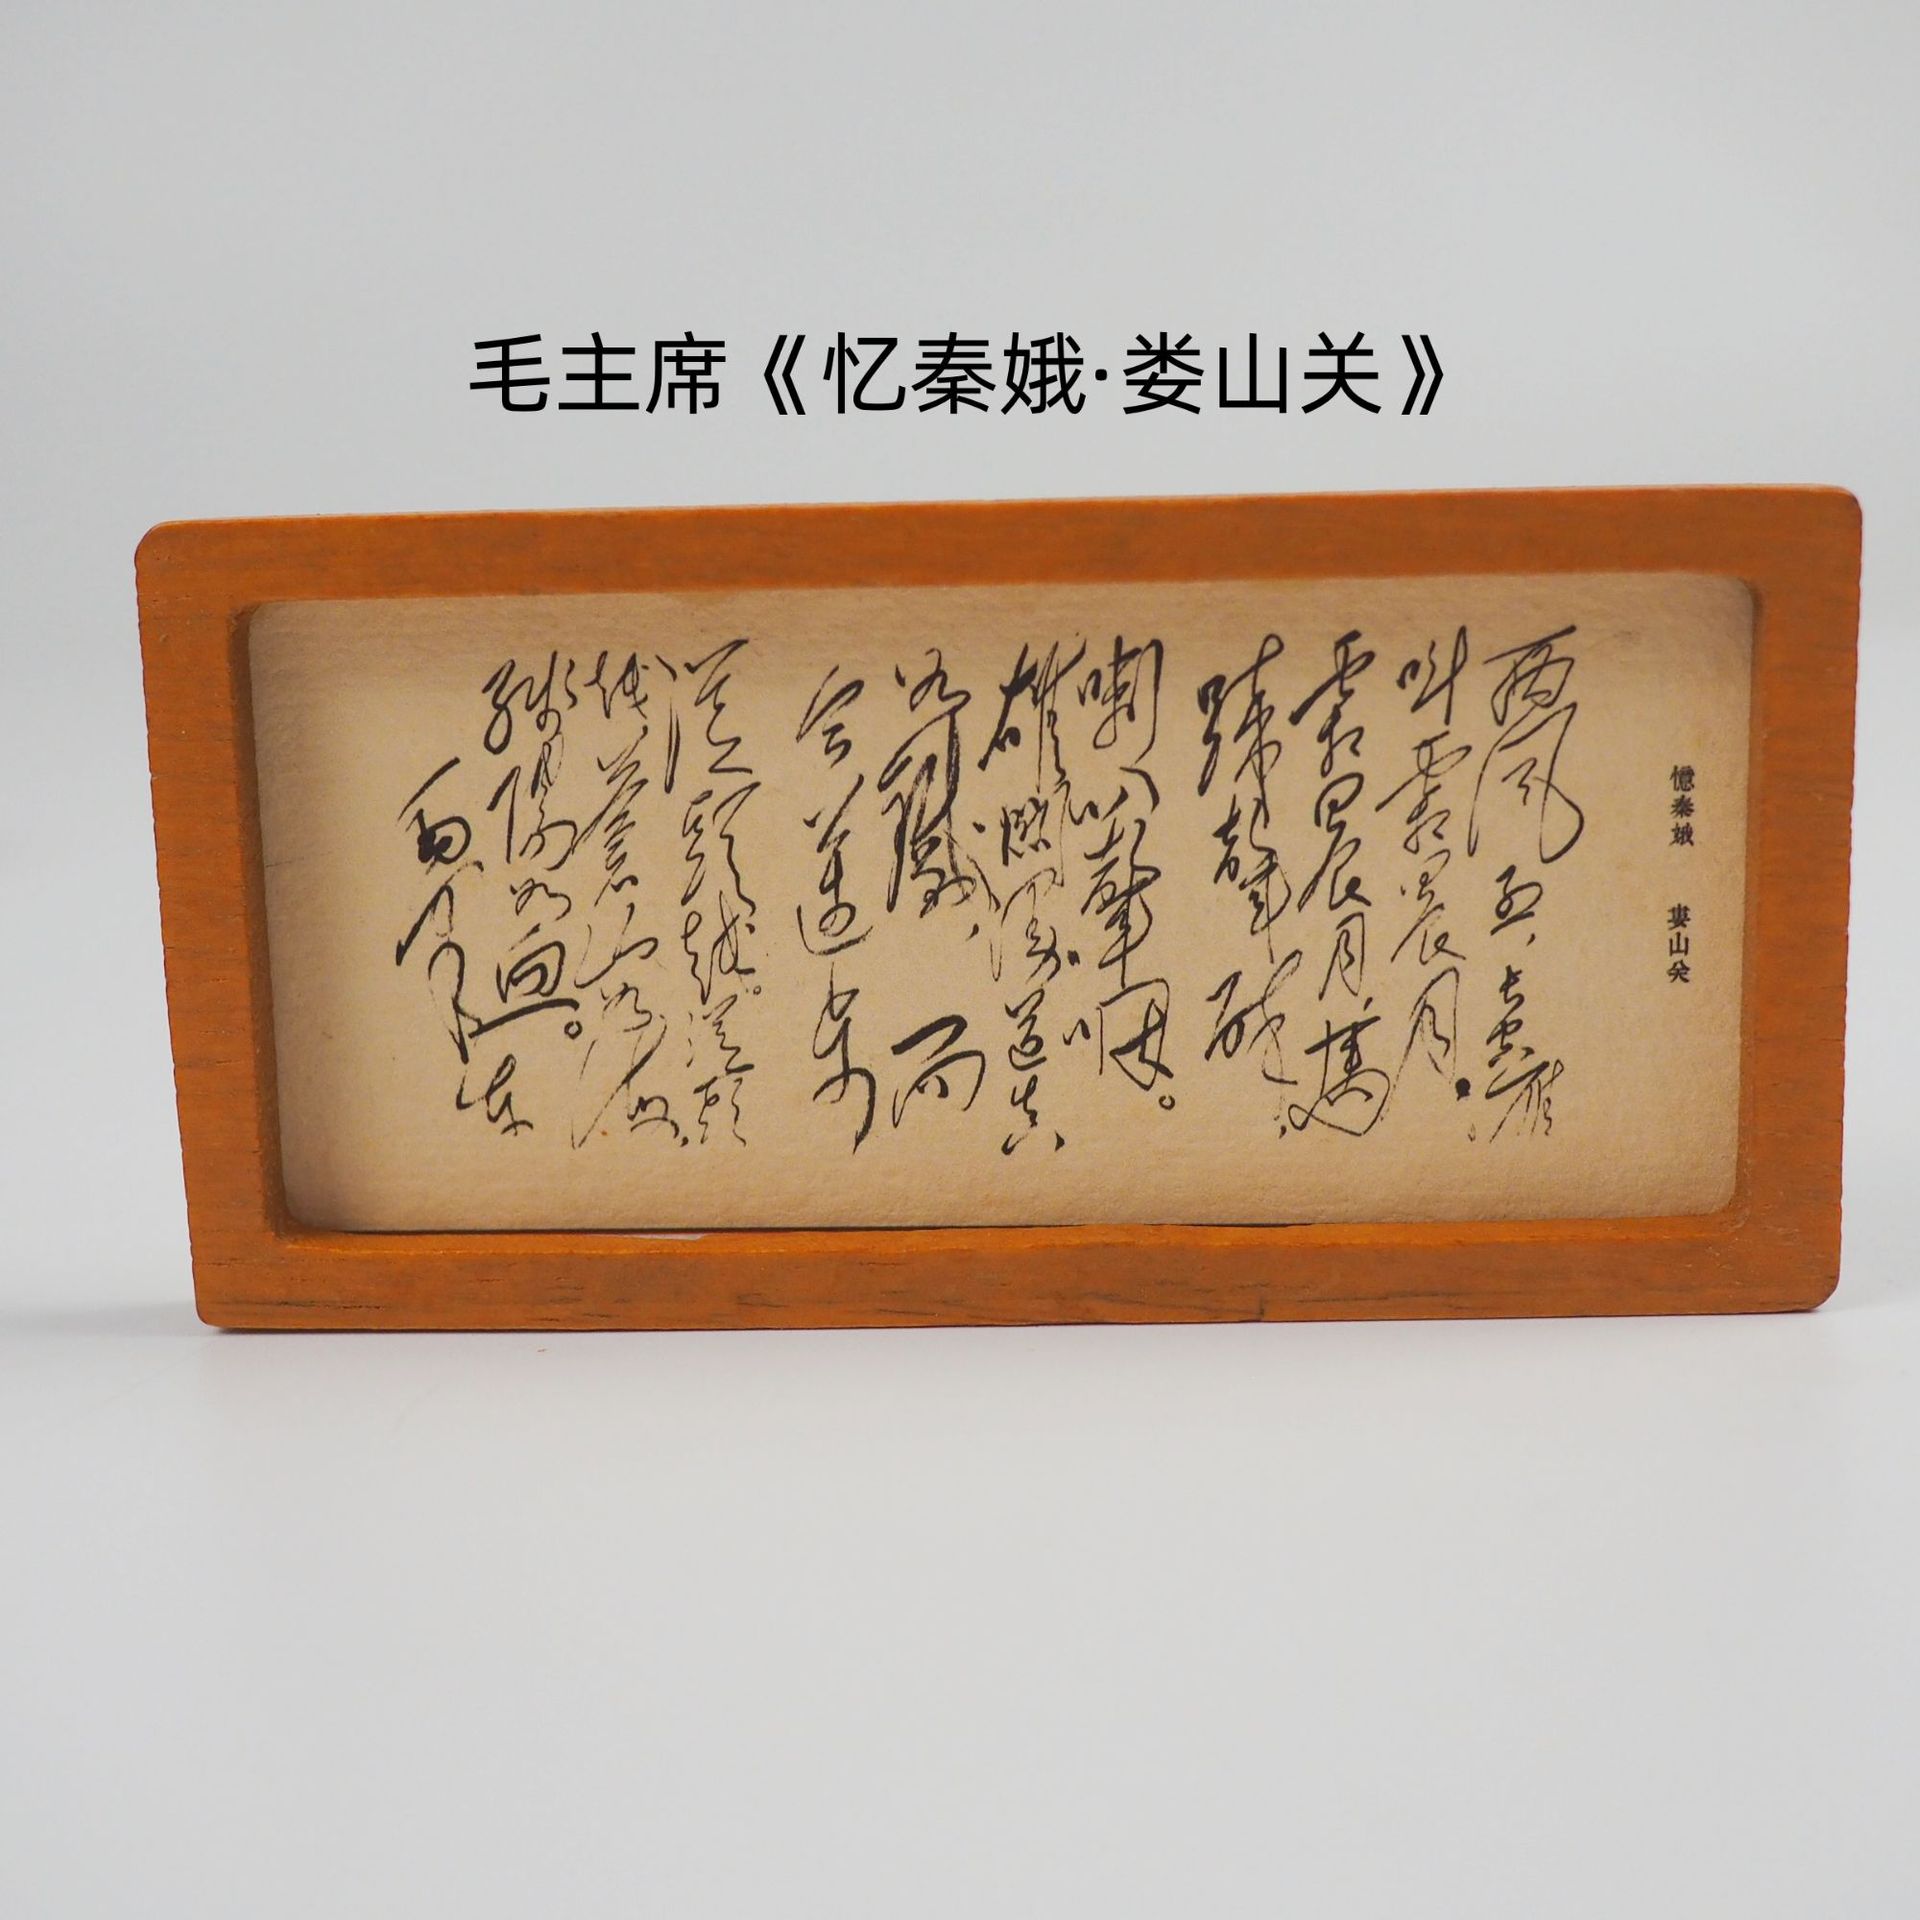 毛主席《忆秦娥·娄山关》
憶秦娥 婁山关
西风烈,长空雁
叫霜晨月。
霜晨月,馬
蹄聲碎,
喇叭聲咽。
雄關漫道真
如鐵,而
今邁步
從頭越。從頭
越,蒼山如海,
殘陽如血。
毛澤东